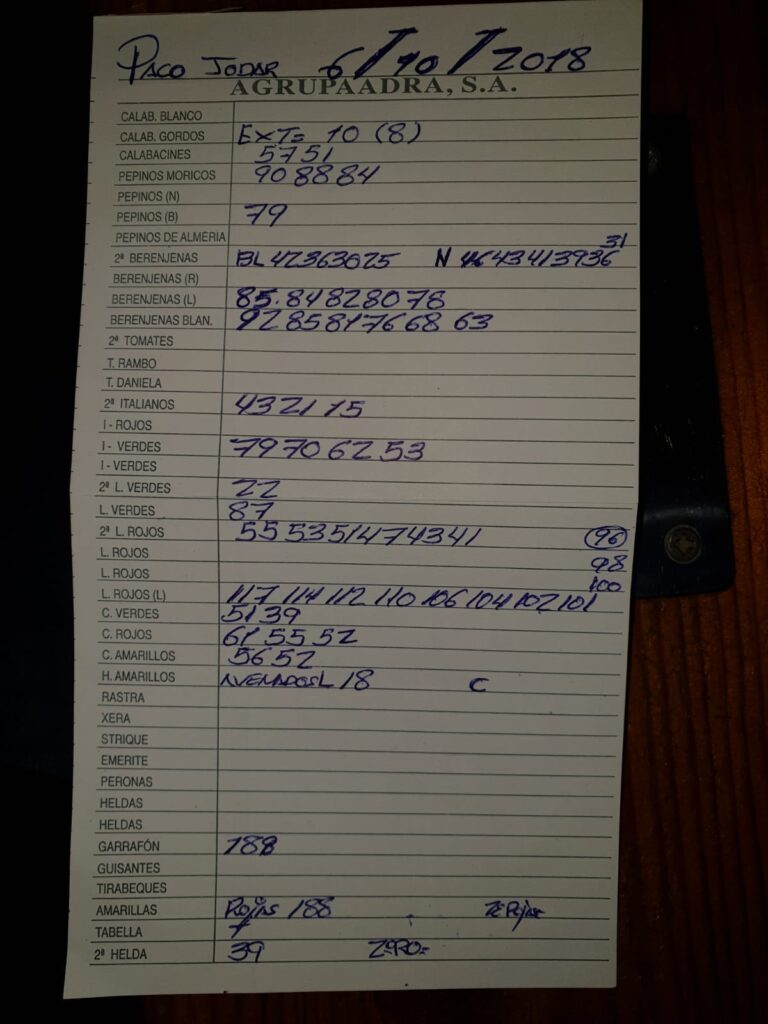 PACO JODAR 6/10/2018
AGRUPAADRA, S.A.
CALAB. BLANCO
CALAB. GORDOS EXT= 10 (8)
CALABACINES 57 51
PEPINOS MORICOS 90 88 84
PEPINOS (N)
PEPINOS (B) 79
PEPINOS DE ALMERIA 31
2ª BERENJENAS BL 42363025 N 46 43 41 39 36
BERENJENAS (R)
BERENJENAS (L) 85.84 82 80 78
BERENJENAS BLAN. 92 85 81 76 68 63
2ª TOMATES
T. RAMBO
T. DANIELA
2ª ITALIANOS 43 21 15
I - ROJOS
I - VERDES 79 70 62 53
I - VERDES
2ª L. VERDES 22
L. VERDES 87
2ª L. ROJOS 55 53 51 47 43 41 96
L. ROJOS 98
L. ROJOS 100
L. ROJOS (L) 117 114 112 110 106 104 102 101
C. VERDES 51 39
C. ROJOS 61 55 52
C. AMARILLOS 56 52
H. AMARILLOS 18 C
RASTRA
XERA
STRIQUE
EMERITE
PERONAS
HELDAS
HELDAS
GARRAFÓN 188
GUISANTES
TIRABEQUES
AMARILLAS Rojas 188
TABELLA
2ª HELDA 39